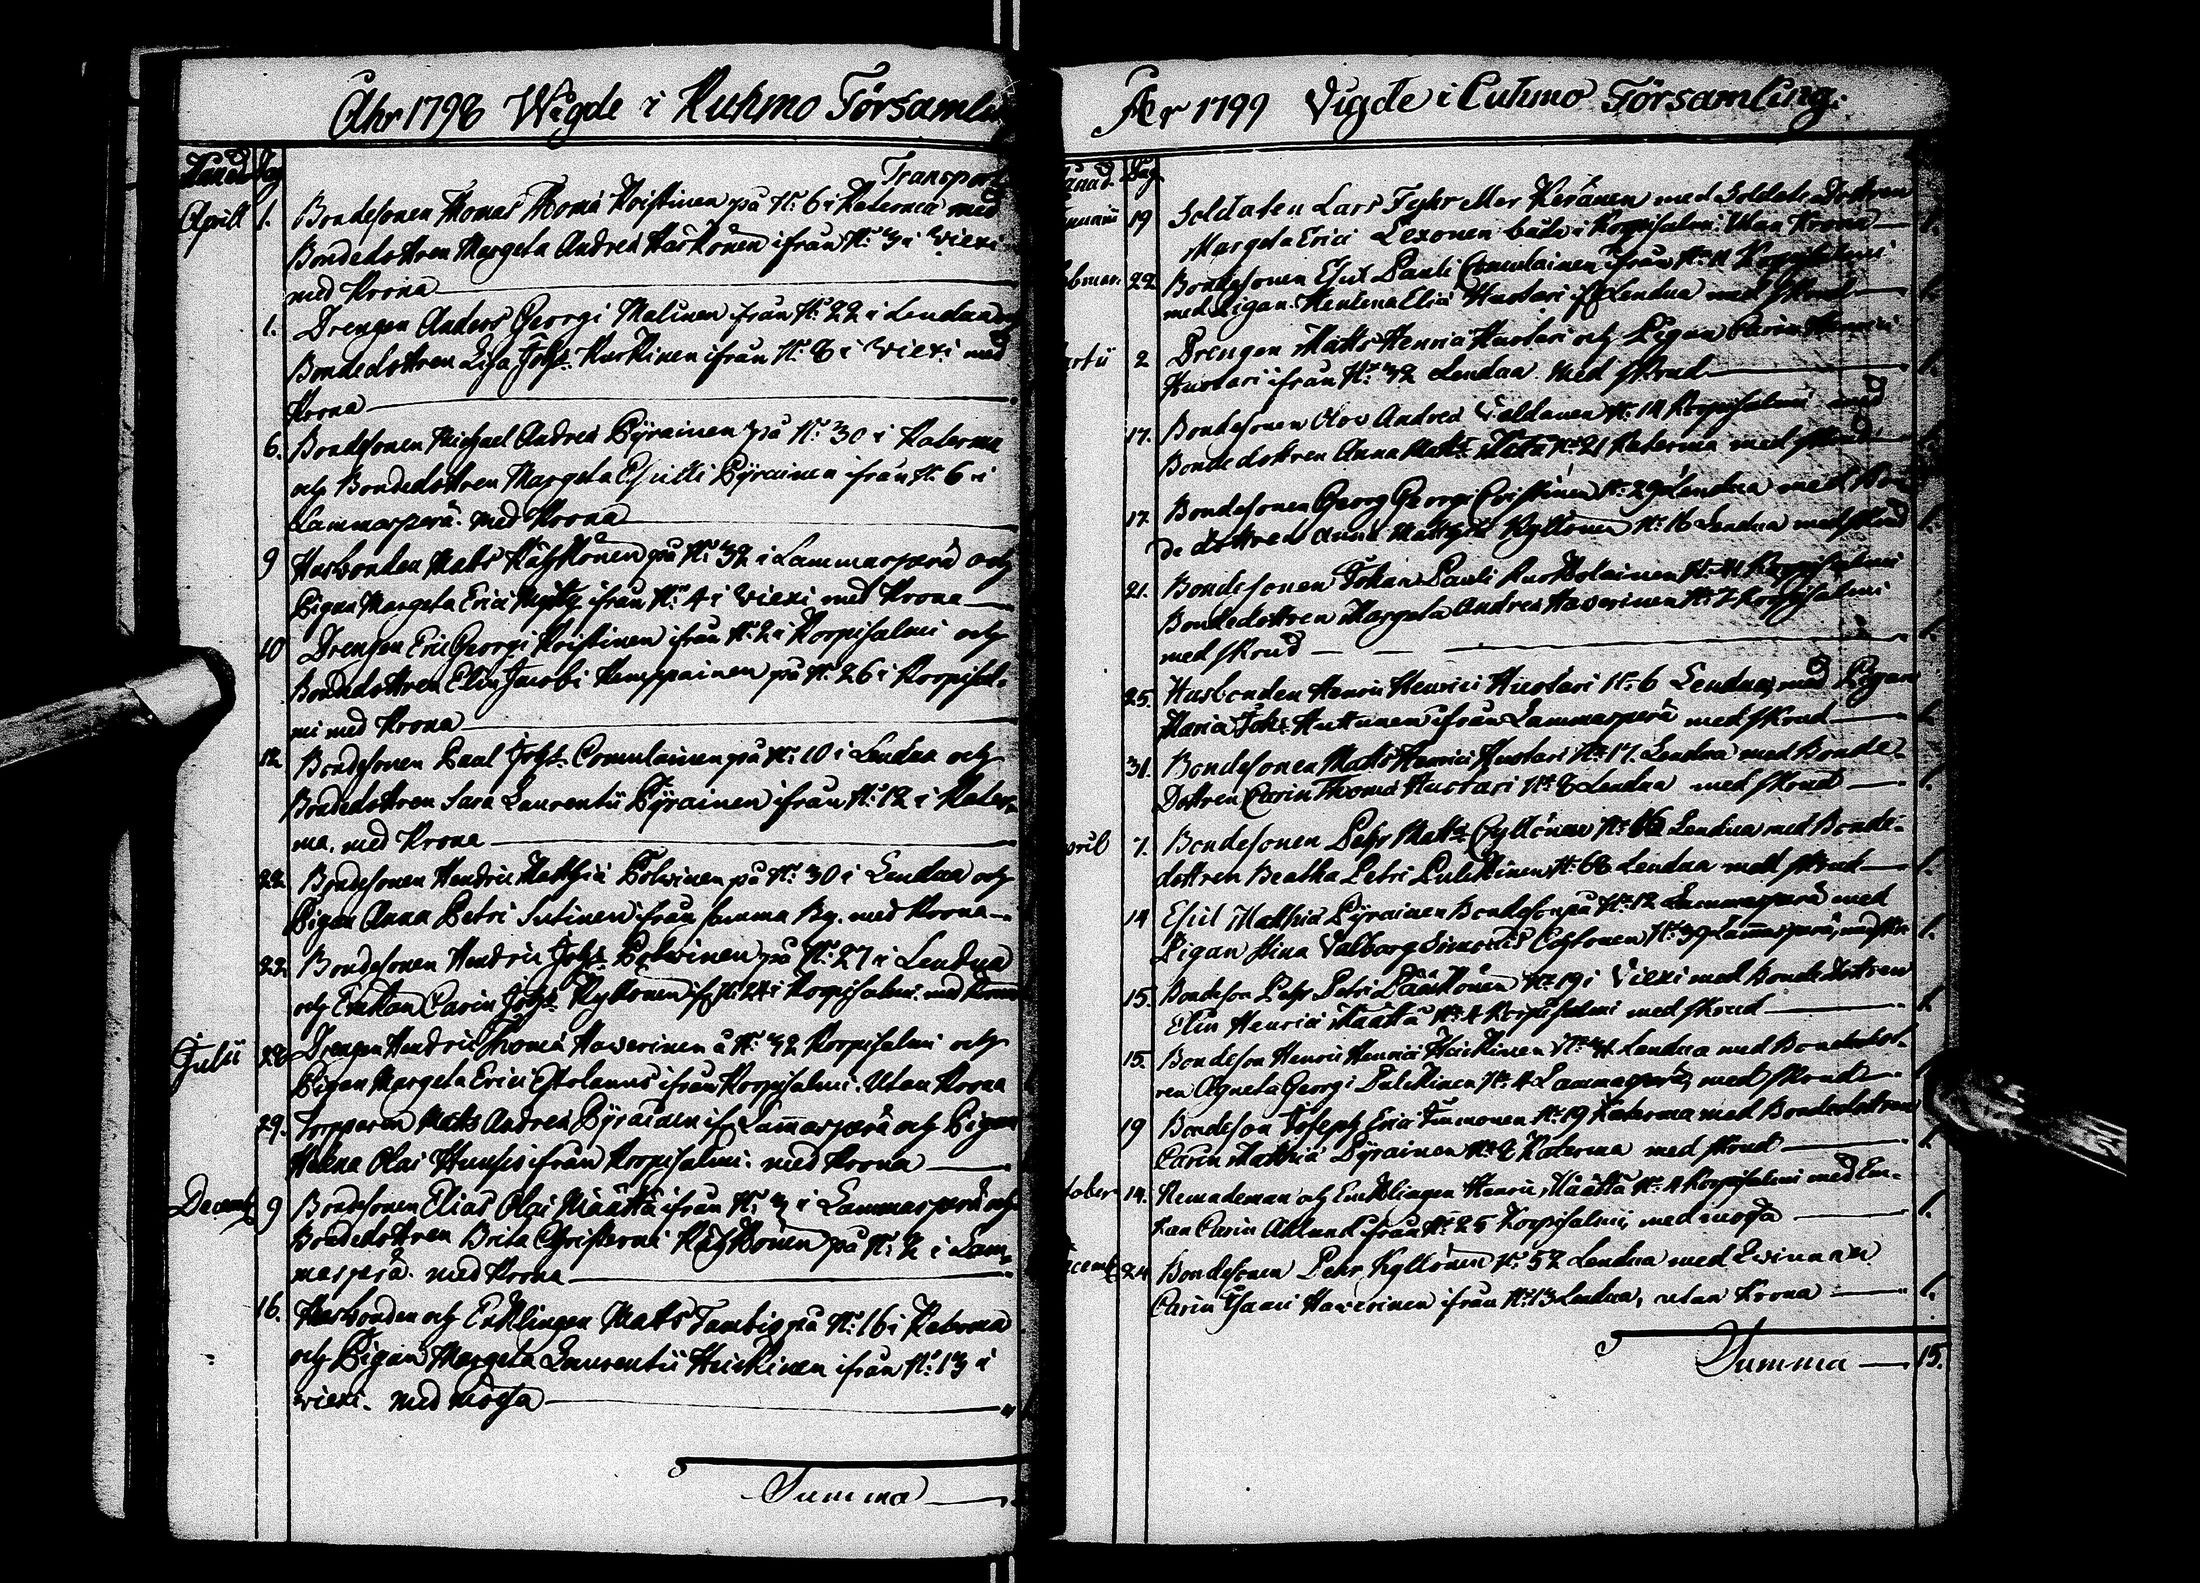 Ahr 1798 Wigde i Kuhmo Församlin
Månad Dag
Transport
Aprill 1. Bondesonen Thomas Thomæ Kristinen på N: 6 i Katerma med
Bondedottren Margeta Andreæ Härkönen ifrån N: 3 i Viexi
med Krona
1. Drengen Anders Georgi Malinen ifrån N: 22 i Lendua
Bondedottren Lisa Johs: Kurkinen ifrån N: 8 i Viexi med
Krona
6. Bondesonen Michael Andreæ Pyrainen på N: 30 i Katerma
och Bondedottren Margeta Pyrainen ifrån N: 6 i
Lammasperä. med Krona
9 Husbonden Matts på N: 32 i Lammasperä och
Pigan Margeta Erici ifrån N: 4 i Viexi med Krona
10 Drengen Eric Georgi Kristinen ifrån N: 2 i Korpisalmi och
Bondedottren Elin Jacobi Kemppainen på N: 26 i Korpisal-
mi med Krona
12 Bondesonen Paul Johs: Comulainen på N: 10 i Lendua och
Bondedottren Sara Laurentii Pyrainen ifrån N: 12 i Kater-
ma. med Krona
22. Bondesonen Hendric Matthiæ Polvinen på N: 30 i Lendua och
Pigan Anna Petri Sutinen ifrån samma By. med Krona
22. Bondesonen Hendric Johs: Polvinen på N: 27 i Lendua
och Enkan Carin Johs: Kyllönen ifr N: 24 i Korpisalmi. med Krona
Julii 28 Drengen Hendric Thomæ Haverinen å N: 32 Korpisalmi och
Pigan Margeta Erici ifrån Korpisalmi. Utan Krona
29. Torparen Matts Andreæ Pyrainen ifr Lammasperä och Pigan
Helena Olai ifrån Korpisalmi. med Krona
Decemb 9 Bondesonen Elias Olai Määttä ifrån N: 3 i Lammasperä och
Bondedottren Brita Christierni på N: 2 i Lam-
masperä. med Krona
16. Husbonden och Enklingen Matts på N: 16 i Katerma
och Pigan Margeta Laurentii Heickinen ifrån N: 13 i
viexi. med mössa
Summa
År 1799 Vigde i Cuhmo Församling.
Månad. Dag
19 Soldaten Lars Keränen med Soldats Dottren
Margeta Erici i Korpisalmi. Utan Krona 1.
22 Bondesonen Pauli Comulainen ifrån N: 11 Korpisalmi
med Pigan Eliæ Huotari ifr Lendua med skrud 1.
artii 2 Drengen Matts Henrici Huotari och Pigan Carin Henrici
Huotari ifrån N: 32 Lendua med skrud 1.
17. Bondesonen Olov Andreæ N: 14 Korpisalmi med
Bondedottren Anna N: 21 Katerma med skrud 1.
17. Bondesonen Georg Georgi Cristinen N: 29 Lendua med Bon
de dottren Anna Kyllönen N: 16 Lendua med skrud 1.
21. Bondesonen Johan Pauli N: 41 Korpisalmi
Bondedottren Margeta Andreæ Haverinen N: 7 Korpisalmi
med skrud 1.
25. Husbonden Henric Henrici Huotari N: 6 Lendua, med Pigan
Maria Johs: Huttunen ifrån Lammasperä med skrud 1.
31. Bondesonen Matts Henrici Huotari N: 17. Lendua med Bonde-
Dottren Carin Thomæ Huotari N: 8 Lendua med skrud 1.
pril 7. Bondesonen Pehr Kyllönen N: 16 Lendua med Bonde-
dottren Beatha Petri Pulckinen N: 68 Lendua med skrud 1.
14 Esaias Matthiæ Pyrainen Bondeson på N: 12 Lammasperä med
Pigan Valborg Simonis N: 39 Lammasperä, 1.
15. Bondeson Pehr Petri Pääskönen N: 19 i Viexi med Bondedottren
Elin Henrici Määttä N: 4 Korpisalmi med skrud 1.
15. Bondeson Henric Henrici Heickinen N: 34 Lendua med Bondedot-
ren Agneta Georgi Pulckinen N: 4 Lammasperä, med skrud
19 Bondeson Joseph Erici Timonen N: 19 Katerma med Bondedottren
Carin Matthiæ Pyrainen N: 2 Katerma med skrud 1.
tober 14. och Encklingen Henric Määttä N: 4 Korpisalmi med En-
kan Carin Ahlund ifrån N: 25 Korpisalmi, med mössa 1.
ecemb 24 Bondesonen Pehr Kyllönen N: 52 Lendua med Qvinnan
Carin Haverinen ifrån N: 13 Lendua, utan Krona 1.
Summa 15.